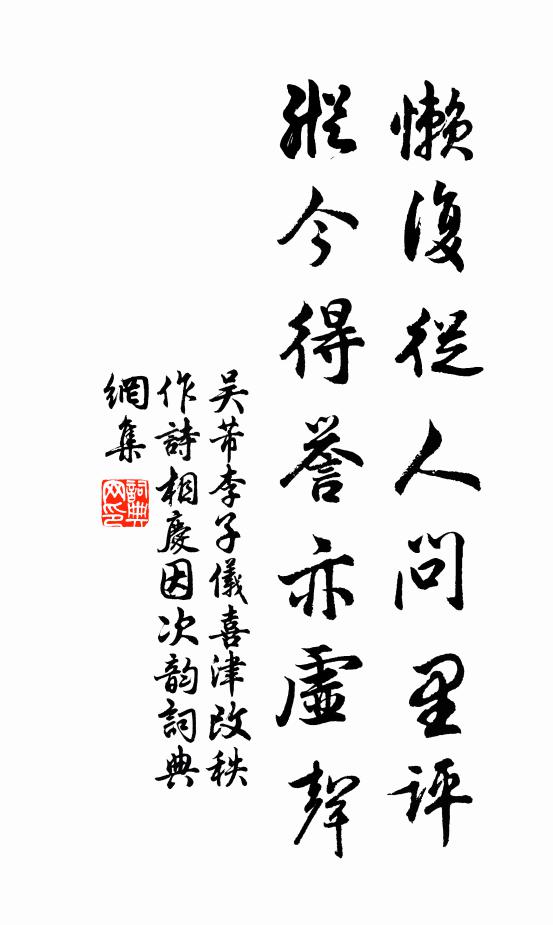 懶復從人問里評
縱今得譽亦虛聲
吴芾李子儀喜津改秩
作詩相慶因次韵詞典
網集
詞典
网印